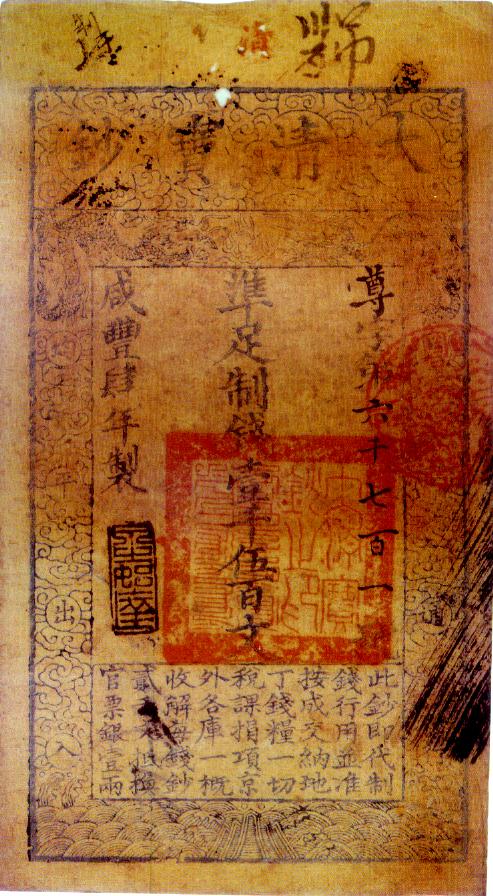 大清寶鈔
尊字第六千七百一
準足制錢壹千伍百文
咸豐肆年製
此鈔即代制
錢行用並准
按成交納地
丁錢糧一切
稅課捐項京
外各庫一概
收解每錢鈔
貳千文抵換
官票銀壹兩
均平出入